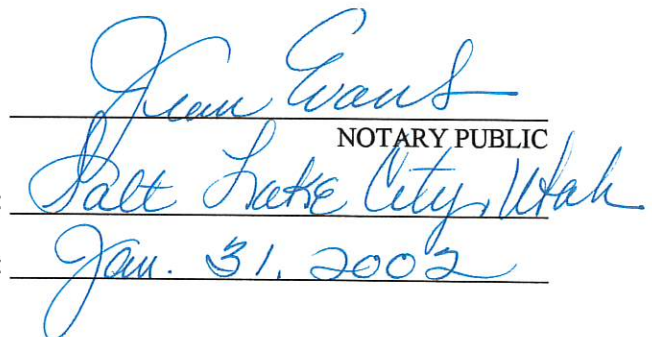 Jean Evans
NOTARY PUBLIC
: Salt Lake City, Utah
: Jan. 31, 2002